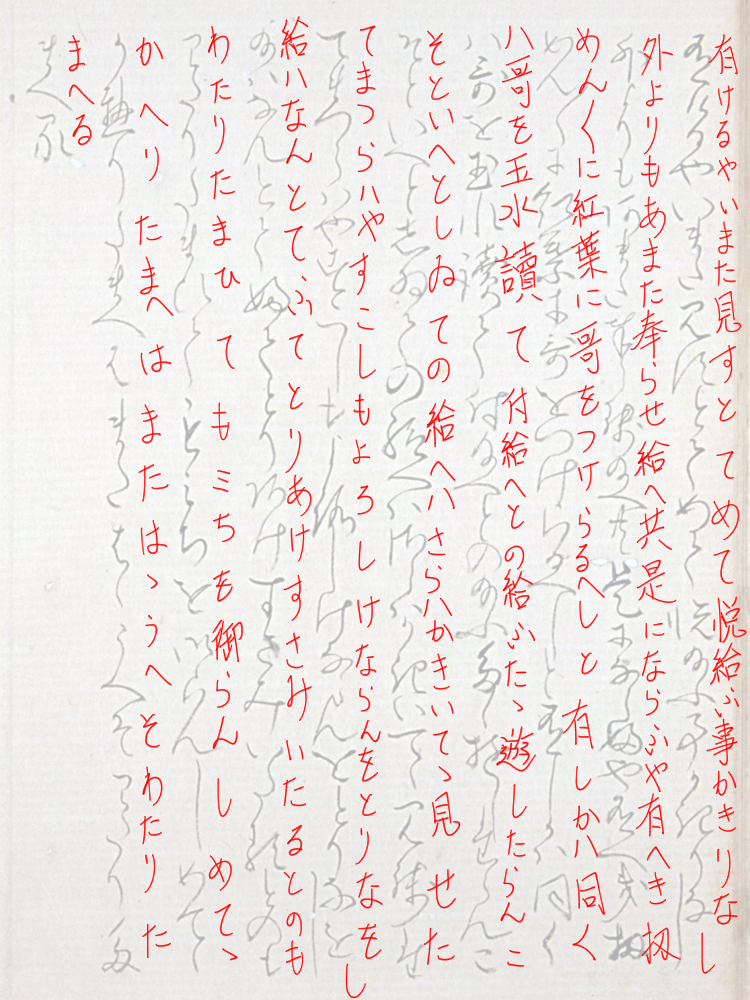 有けるやいまた見すとてめて悦給ふ事かきりなし
外よりもあまた奉らせ給へ共是にならふや有へき扨
めん〱に紅葉に哥をつけらるへしと有しかハ同く
ハ哥を玉水讀て付給へとの給ふたゝ遊したらんこ
そといへとしゐての給へハさらハかきいてゝ見せた
てまつらハやすこしもよろしけならんをとりなをし
給ハなんとてふてとりあけすさみいたるとのも
わたりたまひてもミちを御らんしめてゝ
かへりたまへはまたはゝうへそわたりた
まへる